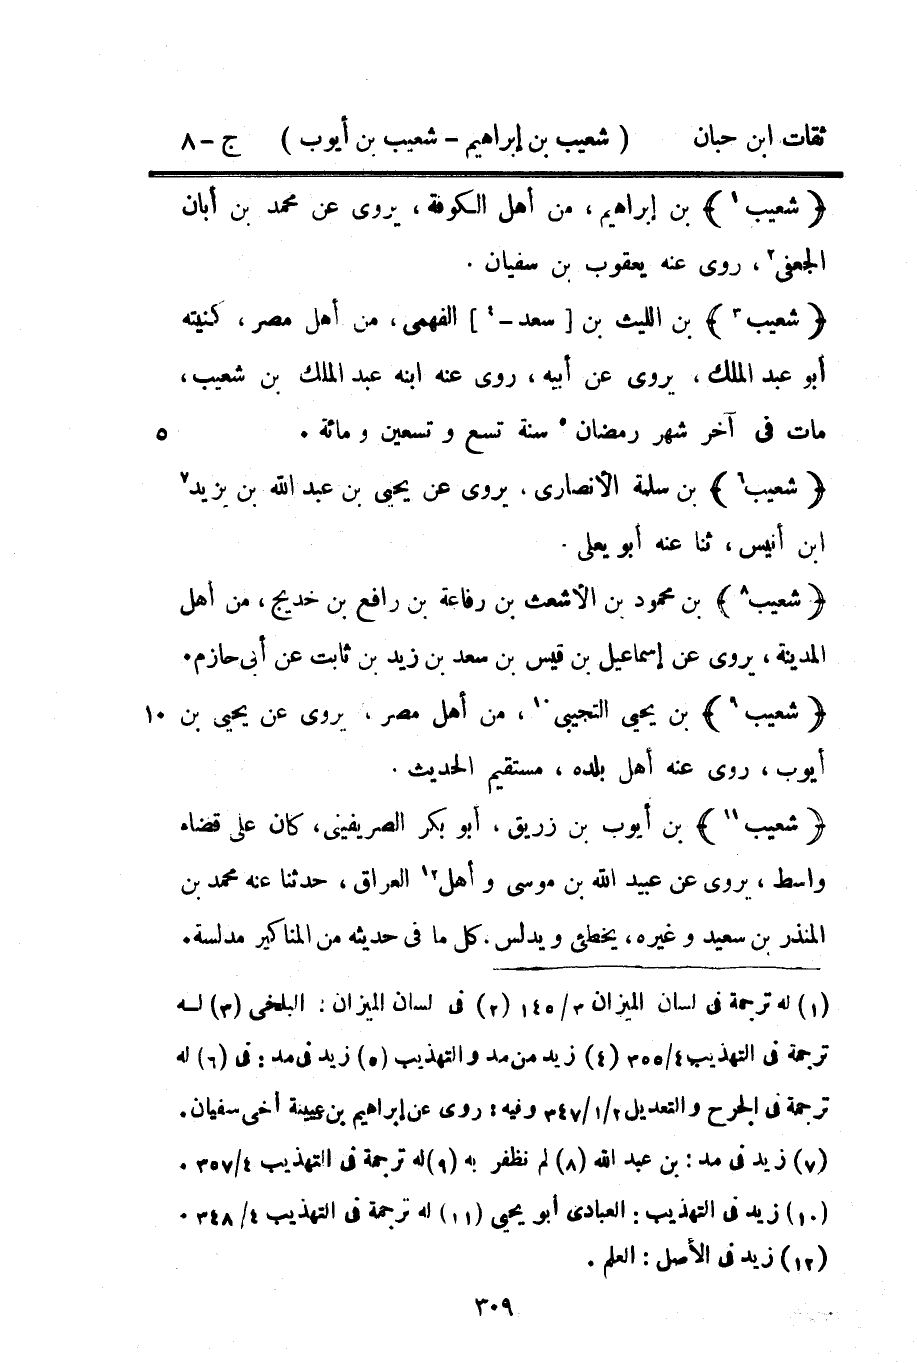 ثقات ابن حبان ( شعيب بن إبراهيم – شعيب بن أيوب ) ج – ٨
﴿ شعيب ١ ﴾ بن إبراهيم ، من أهل الكوفة ، يروى عن محمد بن أبان
الجعفى ٢ ، روى عنه يعقوب بن سفيان .
﴿ شعيب ٣ ﴾ بن الليث بن [ سعد – ٤ ] الفهمى ، من أهل مصر ، كنيته
أبو عبد الملك ، يروى عن أبيه ، روى عنه ابنه عبد الملك بن شعيب ،
مات فى آخر شهر رمضان ٥ سنة تسع و تسعين و مائة . ٥
﴿ شعيب ٦ ﴾ بن سلمة الأنصارى ، يروى عن يحيى بن عبد الله بن يزيد ٧
ابن أنيس ، ثنا عنه أبو يعلى .
﴿ شعيب ٨ ﴾ بن محمود بن الأشعث بن رفاعة بن رافع بن خديج ، من أهل
المدينة ، يروى عن إسماعيل بن قيس بن سعد بن زيد بن ثابت عن أبى حازم .
﴿ شعيب ٩ ﴾ بن يحيى التجيبى ١٠ ، من أهل مصر ، يروى عن يحيى بن ١٠
أيوب ، روى عنه أهل بلده ، مستقيم الحديث .
﴿ شعيب ١١ ﴾ بن أيوب بن زريق ، أبو بكر الصريفينى ، كان على قضاء
واسط ، يروى عن عبيد الله بن موسى و أهل ١٢ العراق ، حدثنا عنه محمد بن
المنذر بن سعيد و غيره ، يخطئ و يدلس . كل ما فى حديثه من المناكير مدلسة .
(١) له ترجمة فى لسان الميزان ٣/ ١٤٥ (٢) فى لسان الميزان : البلخى (٣) لـه
ترجمة فى التهذيب ٤/ ٣٥٥ (٤) زيد من مد و التهذيب (٥) زيد فى مد : فى (٦) له
ترجمة فى الجرح و التعديل ٢/ ١/ ٣٤٧ و فيه : روى عن إبراهيم بن عيينة أخى سفيان .
(٧) زيد فى مد : بن عبد الله (٨) لم نظفر به (٩) له ترجمة فى التهذيب ٤/ ٣٥٧ .
(١٠) زيد فى التهذيب : العبادى أبو يحيى (١١) له ترجمة فى التهذيب ٤/ ٣٤٨ .
(١٢) زيد فى الأصل : العلم .
٣٠٩